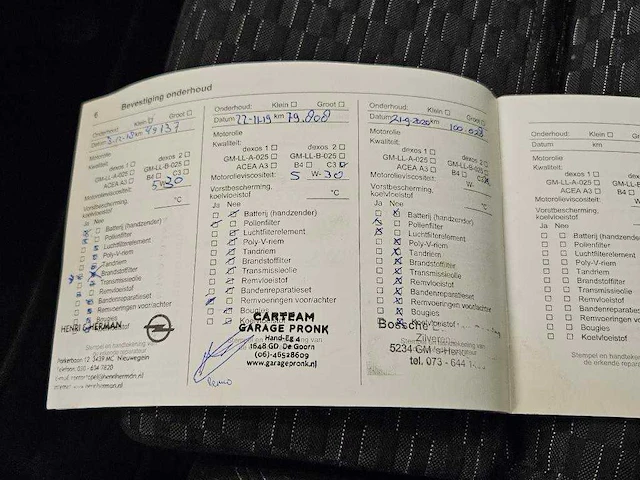 Bevestiging onderhoud
Onderhoud: Klein Groot
Datum km 49137
Motorolie
Kwaliteit:
dexos 1 dexos 2
GM-LL-A-025 GM-LL-B-025
ACEA A3 B4 C3
Motorolieviscositeit: 5 W- 30
Vorstbescherming, koelvloeistof °C
Ja Nee
Batterij (handzender)
Pollenfilter
Luchtfilterelement
Poly-V-riem
Tandriem
Brandstoffilter
Transmissieolie
Remvloeistof
Bandenreparatieset
Remvoeringen voor/achter
Bougies
HENRI HERMAN
Parkerbaan 12 3439 MC Nieuwegein
Onderhoud: Klein Groot
Datum 22-11-19 km 79.808
Motorolie
Kwaliteit:
dexos 1 dexos 2
GM-LL-A-025 GM-LL-B-025
ACEA A3 B4 C3
Motorolieviscositeit: 5 W- 30
Vorstbescherming,
koelvloeistof °C
Ja Nee
Batterij (handzender)
Pollenfilter
Luchtfilterelement
Poly-V-riem
Tandriem
Brandstoffilter
Transmissieolie
Remvloeistof
Bandenreparatieset
Remvoeringen voor/achter
Bougies
CARTEAM
GARAGE PRONK
Hand-Eg 4
1648 GD De Goorn
(06)-46528609
www.garagepronk.nl
Onderhoud: Klein Groot
Datum 21-9-2020 km
Motorolie
Kwaliteit:
dexos 1 dexos 2
GM-LL-A-025 GM-LL-B-025
ACEA A3 B4 C3
Motorolieviscositeit: W-
Vorstbescherming,
koelvloeistof °C
Ja Nee
Batterij (handzender)
Pollenfilter
Luchtfilterelement
Poly-V-riem
Tandriem
Brandstoffilter
Transmissieolie
Remvloeistof
Bandenreparatieset
Remvoeringen voor/achter
Bougies
Koelvloeistof
Bossche
5234 GM 's-Her
tel. 073 - 644
Onderhoud: Klein
Datum km
Motorolie
Kwaliteit:
dexos 1
GM-LL-A-025 GM-LL-B
ACEA A3 B4
Motorolieviscositeit: W-
Vorstbescherming,
koelvloeistof
Ja Nee
Batterij (handzender)
Pollenfilter
Luchtfilterelement
Poly-V-riem
Tandriem
Brandstoffilter
Transmissieolie
Remvloeistof
Bandenreparatieset
Remvoeringen voor/a
Bougies
Koelvloeistof
Stempel en handtekening
de erkende reparateur